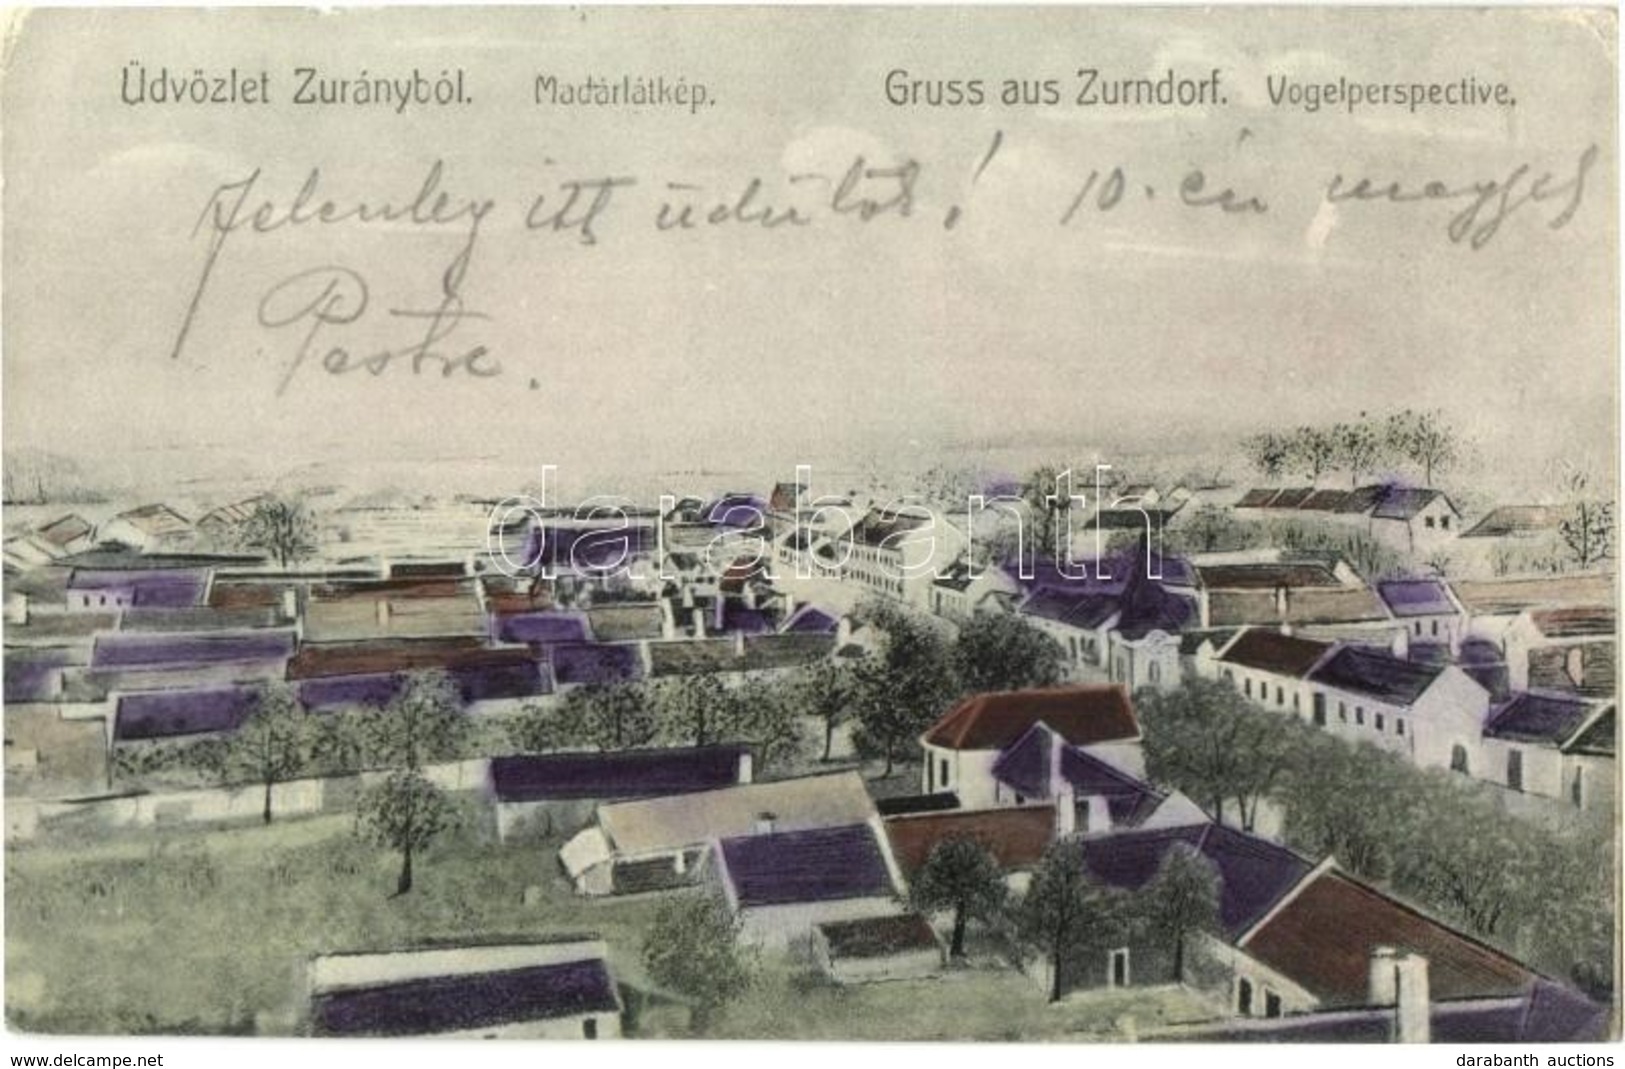 Üdvözlet Zurányból. Madárlátkép. Gruss aus Zurndorf. Vogelperspective.
Jelenleg itt üdülök! 10.-én megyek
Pestre.
darabanth
www.delcampe.net darabanth auctions